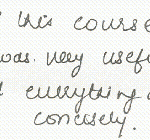 this course
was very usef
everything
concisely.